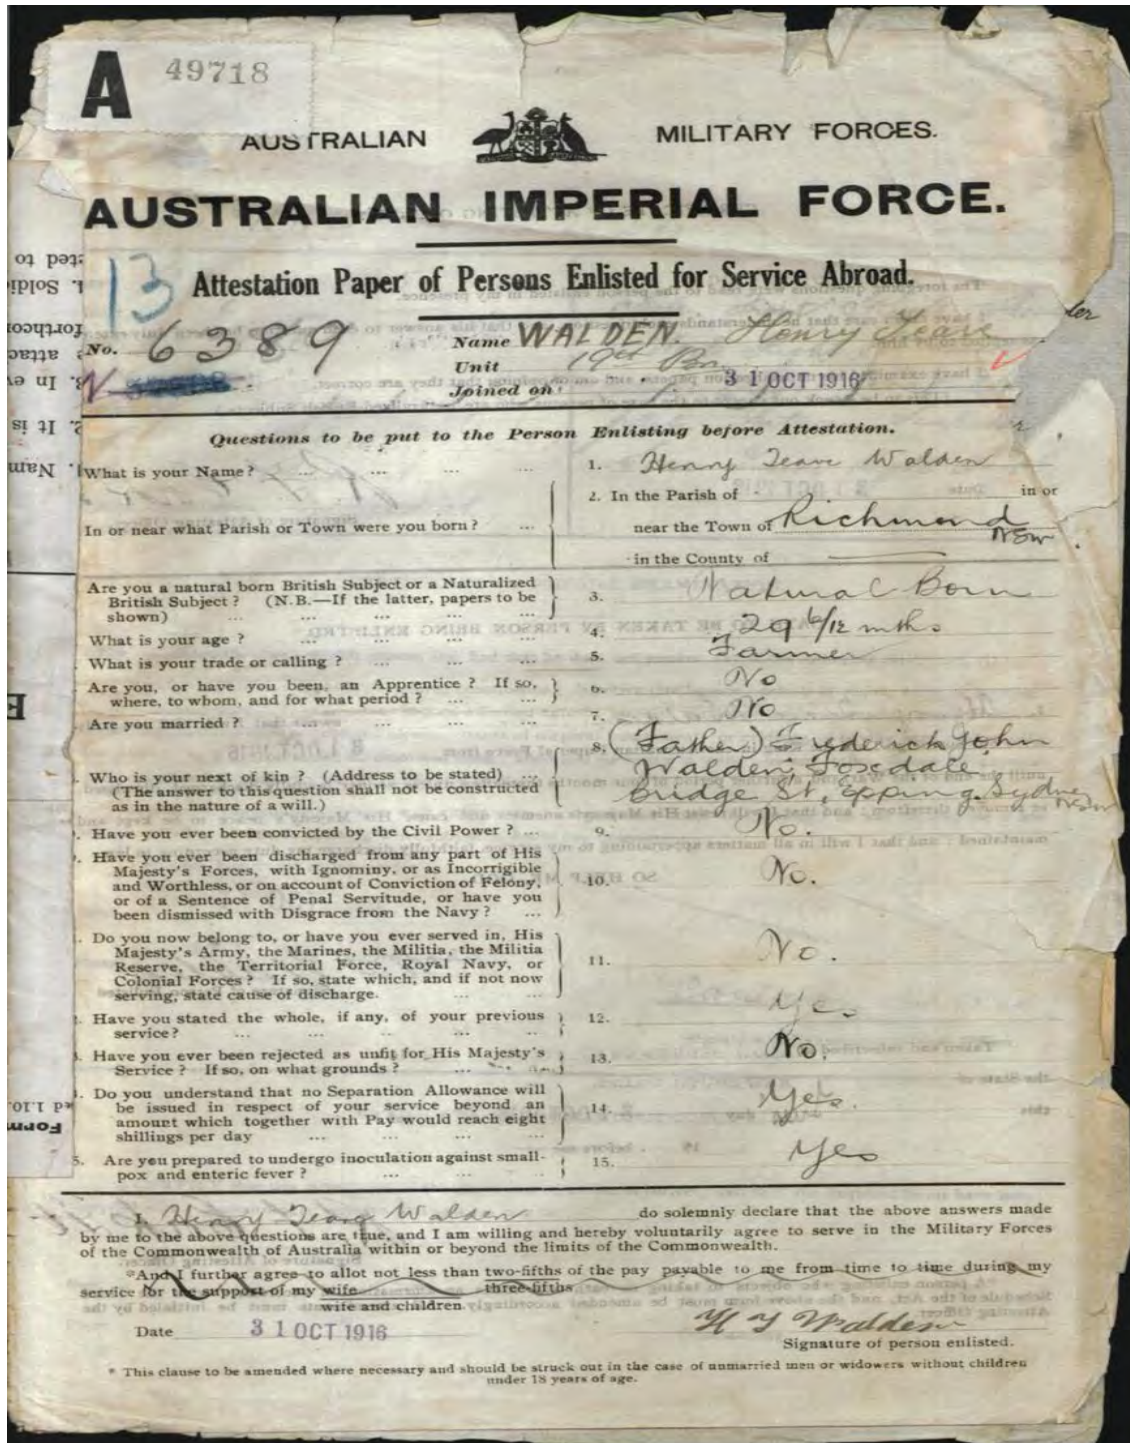 A 49718
AUSTRALIAN MILITARY FORCES.
AUSTRALIAN IMPERIAL FORCE.
13
Attestation Paper of Persons Enlisted for Service Abroad.
No. 6389 Name WALDEN. Henry Teare
Unit 19th Bn
Joined on 31 OCT 1916
Questions to be put to the Person Enlisting before Attestation.
What is your Name? ... ... ... ... 1. Henry Teare Walden
In or near what Parish or Town were you born? ... 2. In the Parish of in or
near the Town of Richmond
NSW
in the County of
Are you a natural born British Subject or a Naturalized
British Subject? (N.B.—If the latter, papers to be
shown) ... ... ... ... 3. Natural Born
What is your age? ... ... ... ... 4. 29 6/12 mths
What is your trade or calling? ... ... ... 5. Farmer
Are you, or have you been, an Apprentice? If so,
where, to whom, and for what period? ... ... 6. No
Are you married? ... ... ... ... 7. No
Who is your next of kin? (Address to be stated) ...
(The answer to this question shall not be constructed
as in the nature of a will.)
8. (Father) Frederick John
Walden, Foxdale,
Bridge St, Epping. Sydney
NSW
. Have you ever been convicted by the Civil Power? ... 9. No.
. Have you ever been discharged from any part of His
Majesty's Forces, with Ignominy, or as Incorrigible
and Worthless, or on account of Conviction of Felony,
or of a Sentence of Penal Servitude, or have you
been dismissed with Disgrace from the Navy? ...
10. No.
. Do you now belong to, or have you ever served in, His
Majesty's Army, the Marines, the Militia, the Militia
Reserve, the Territorial Force, Royal Navy, or
Colonial Forces? If so, state which, and if not now
serving, state cause of discharge. ... ...
11. No.
. Have you stated the whole, if any, of your previous
service? ... ... ... ... 12. Yes
. Have you ever been rejected as unfit for His Majesty's
Service? If so, on what grounds? ... ... 13. No.
. Do you understand that no Separation Allowance will
be issued in respect of your service beyond an
amount which together with Pay would reach eight
shillings per day ... ... ... ...
14. Yes.
5. Are you prepared to undergo inoculation against small-
pox and enteric fever? ... ... ... 15. Yes
I, Henry Teare Walden do solemnly declare that the above answers made
by me to the above questions are true, and I am willing and hereby voluntarily agree to serve in the Military Forces
of the Commonwealth of Australia within or beyond the limits of the Commonwealth.
*And I further agree to allot not less than two-fifths of the pay payable to me from time to time during my
service for the support of my wife three-fifths
wife and children.
Date 31 OCT 1916 H T Walden
Signature of person enlisted.
* This clause to be amended where necessary and should be struck out in the case of unmarried men or widowers without children
under 18 years of age.